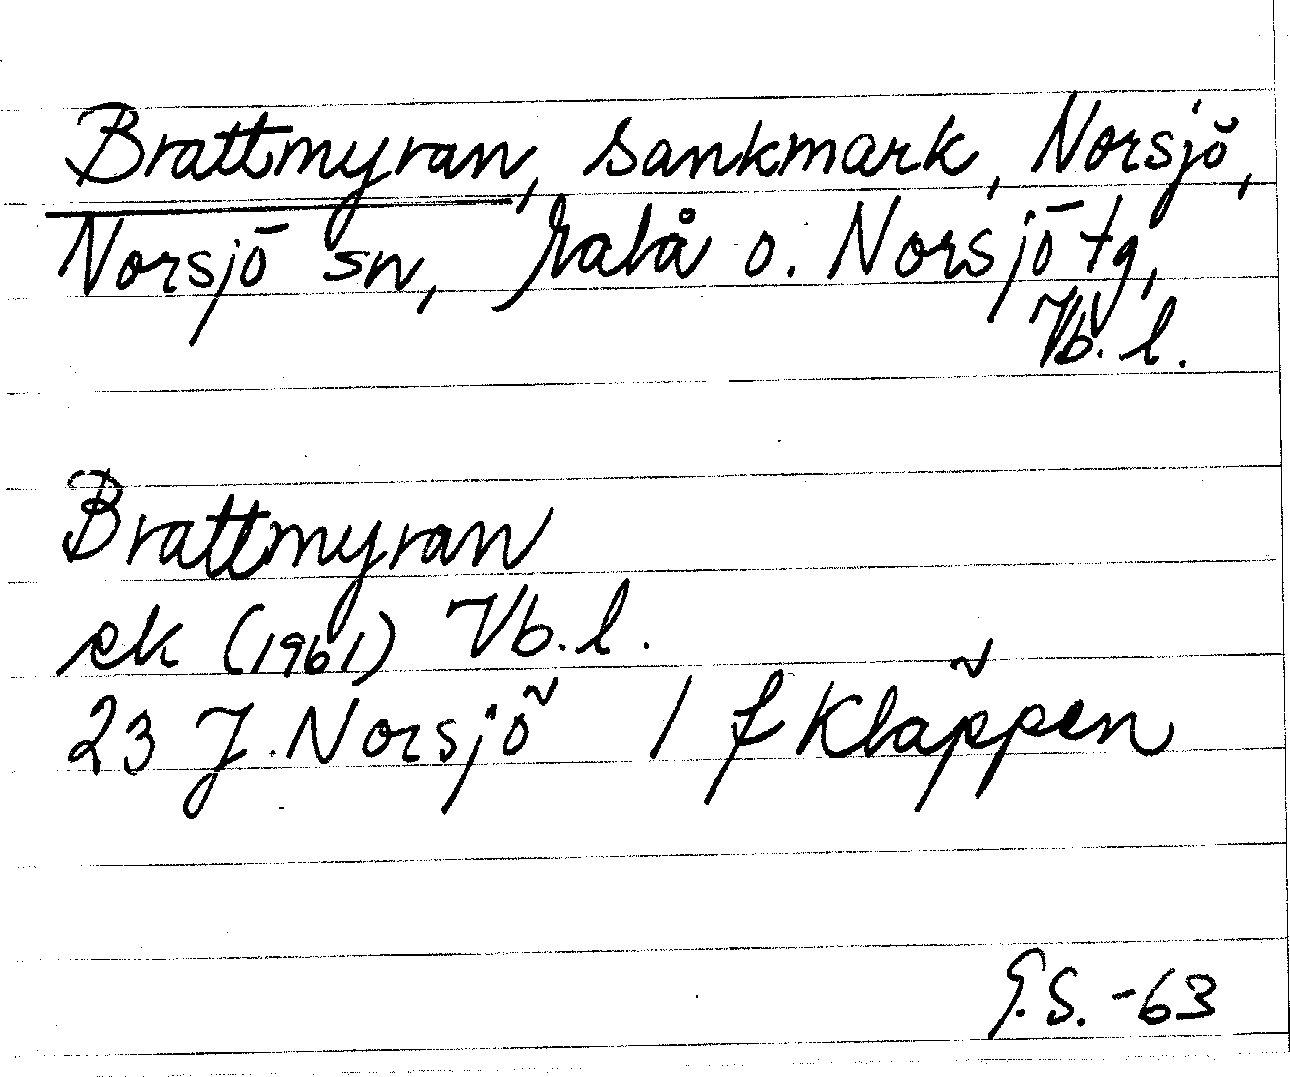 Brattmyran, sankmark, Norsjö,
Norsjö sn, Malå o. Norsjö tg,
Vb. l.
Brattmyran
ek (1961) Vb. l.
23 J. Norsjö 1 f Kläppen
G.S. -63